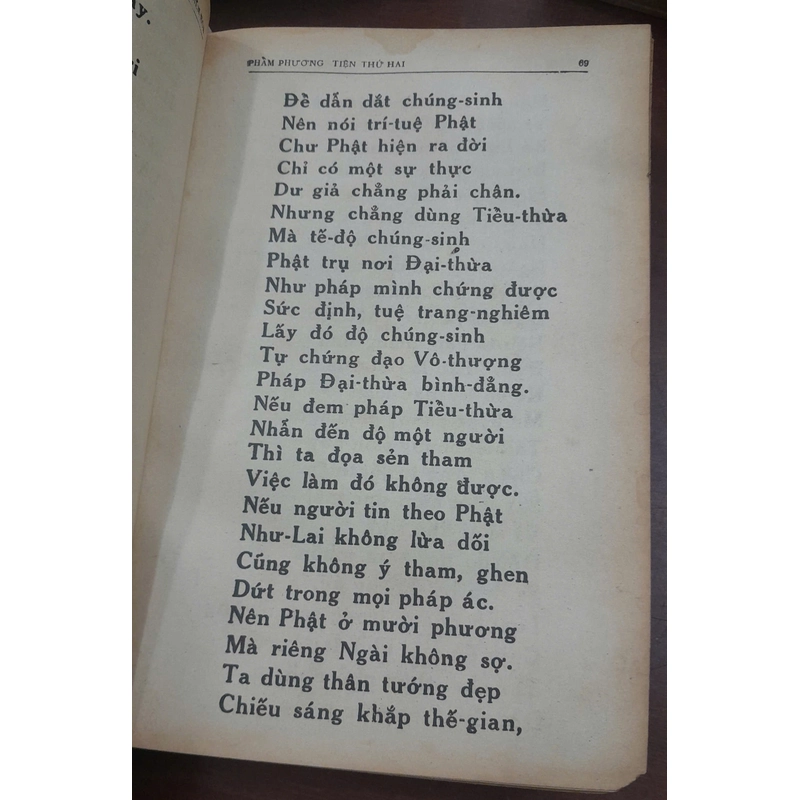 ây.
ri
PHẨM PHƯƠNG TIỆN THỨ HAI 69
Để dẫn dắt chúng-sinh
Nên nói trí-tuệ Phật
Chư Phật hiện ra đời
Chỉ có một sự thực
Dư giả chẳng phải chân.
Nhưng chẳng dùng Tiểu-thừa
Mà tế-độ chúng-sinh
Phật trụ nơi Đại-thừa
Như pháp mình chứng được
Sức định, tuệ trang-nghiêm
Lấy đó độ chúng-sinh
Tự chứng đạo Vô-thượng
Pháp Đại-thừa bình-đẳng.
Nếu đem pháp Tiểu-thừa
Nhẫn đến độ một người
Thì ta đọa sẻn tham
Việc làm đó không được.
Nếu người tin theo Phật
Như-Lai không lừa dối
Cũng không ý tham, ghen
Dứt trong mọi pháp ác.
Nên Phật ở mười phương
Mà riêng Ngài không sợ.
Ta dùng thân tướng đẹp
Chiếu sáng khắp thế-gian,